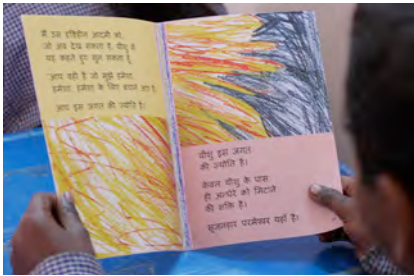 मैं उस दृष्टिहीन आदमी को,
जो अब देख सकता है, यीशु से
यह कहते हुए सुन सकता हूँ,
"आप वही हैं जो मुझे हमेशा,
हमेशा, हमेशा के लिए बचाने आए हैं।
आप इस जगत की ज्योति हैं।
यीशु इस जगत
की ज्योति हैं।
केवल यीशु के पास
ही अन्धेरे को मिटाने
की शक्ति है।
सृजनहार परमेश्वर यहाँ हैं।